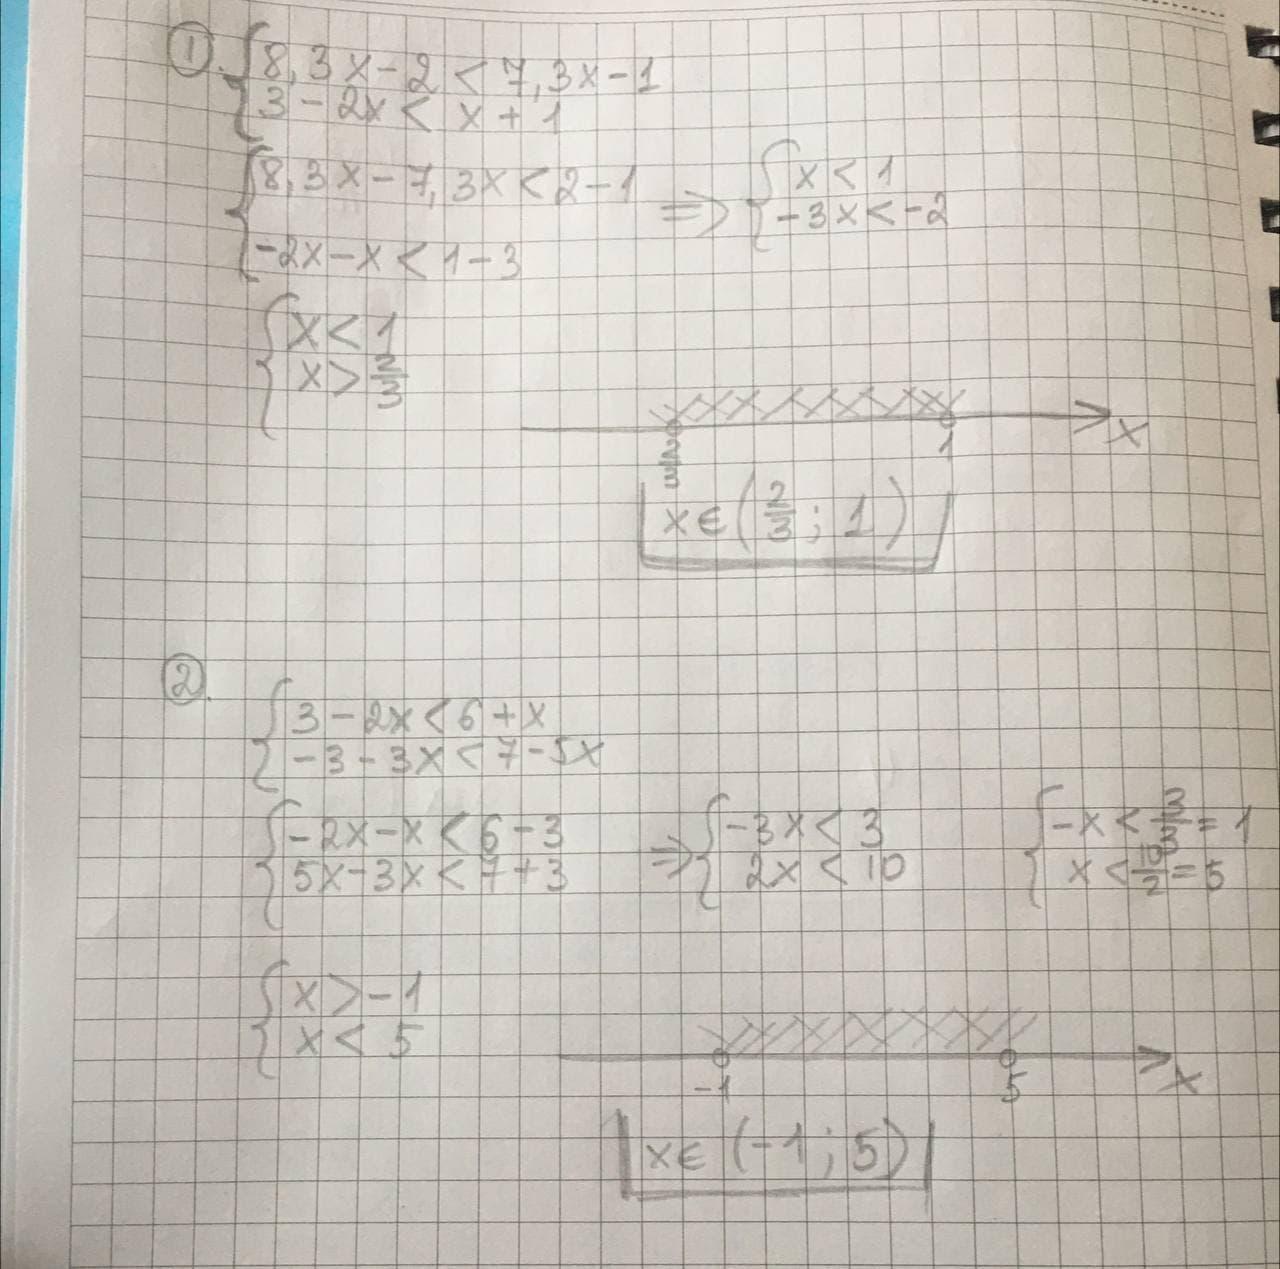 ①. { 8,3x-2 < 7,3x-1
3 - 2x < x + 1
{ 8,3x-7,3x < 2-1
-2x-x < 1-3
=> { x < 1
-3x < -2
{ x < 1
x > 2/3
2/3 1 x
x ∈ (2/3 ; 1)
②.
{ 3 - 2x < 6 + x
-3 - 3x < 7 - 5x
{ -2x-x < 6-3
5x-3x < 7+3
=> { -3x < 3
2x < 10
{ -x < 3/3 = 1
x < 10/2 = 5
{ x > -1
x < 5
-1 5 x
x ∈ (-1 ; 5)